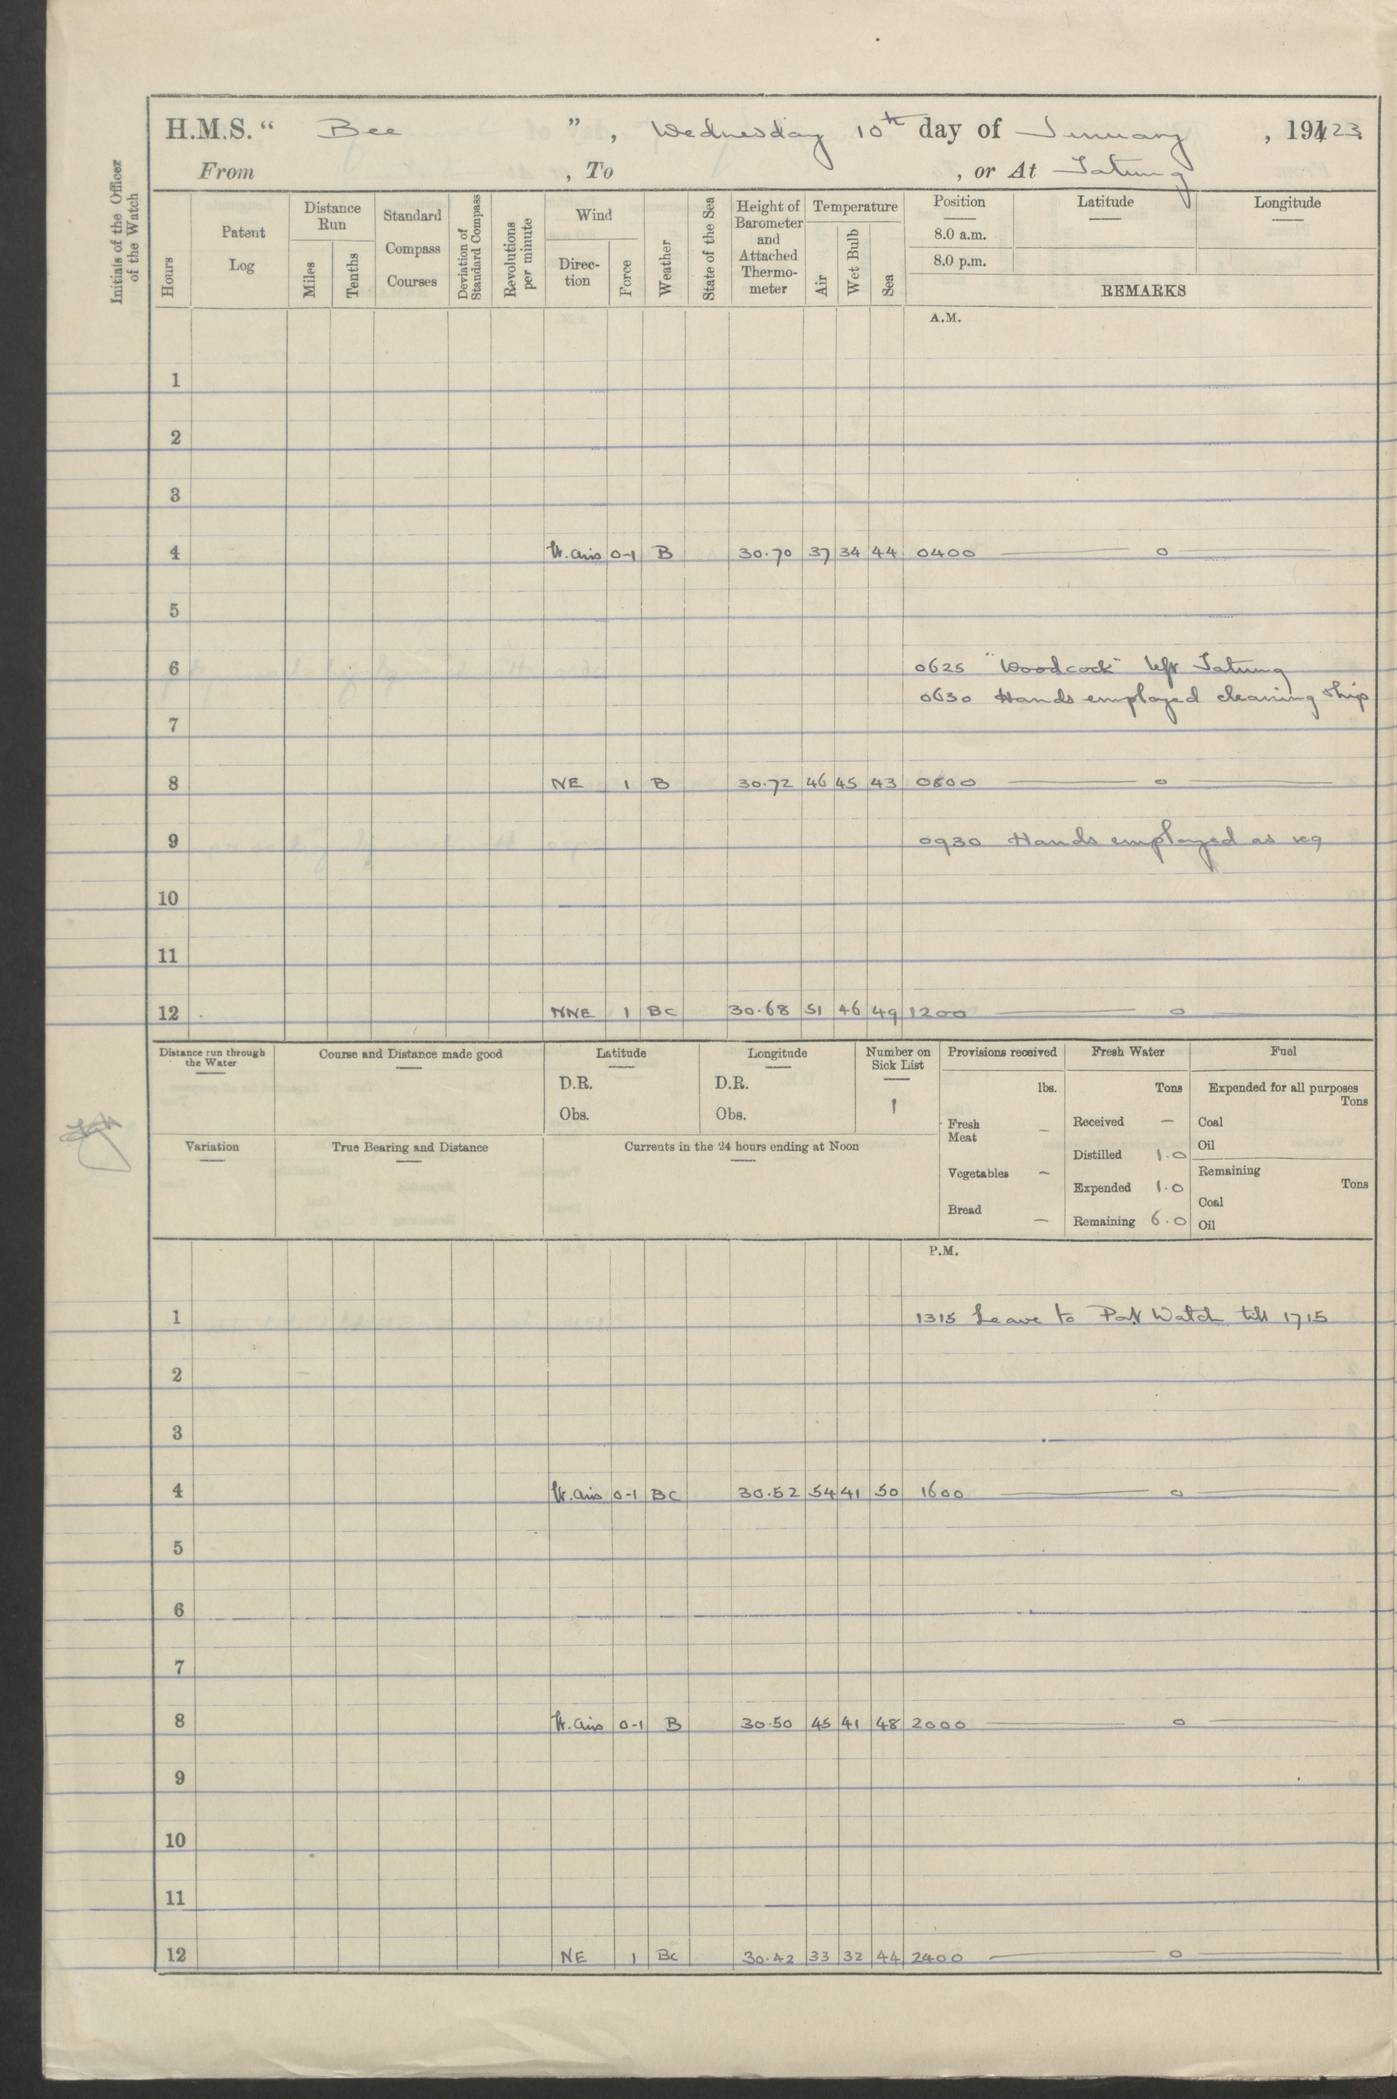 H.M.S. " Bee " , Wednesday 10th day of January , 1923
From , To , or At Tatung
Initials of the Officer of the Watch
Hours
Patent Log
Distance Run
Miles
Tenths
Standard Compass Courses
Deviation of Standard Compass
Revolutions per minute
Wind
Direction
Force
Weather
State of the Sea
Height of Barometer and Attached Thermometer
Temperature
Air
Wet Bulb
Sea
Position
8.0 a.m.
8.0 p.m.
Latitude
Longitude
REMARKS
A.M.
1
2
3
4 lt. airs 0-1 B 30.70 37 34 44 0400 — o —
5
6 0625 "Woodcock" left Tatung
0630 Hands employed cleaning ship
7
8 NE 1 B 30.72 46 45 43 0800 — o —
9 0930 Hands employed as req
10
11
12 NNE 1 BC 30.68 51 46 49 1200 — o —
Distance run through the Water
Course and Distance made good
Latitude
D.R.
Obs.
Longitude
D.R.
Obs.
Number on Sick List
1
Provisions received
lbs.
Fresh Meat –
Vegetables –
Bread –
Fresh Water
Tons
Received –
Distilled 1.0
Expended 1.0
Remaining 6.0
Fuel
Expended for all purposes
Tons
Coal
Oil
Remaining
Tons
Coal
Oil
Variation
True Bearing and Distance
Currents in the 24 hours ending at Noon
P.M.
1 1315 Leave to Port Watch till 1715
2
3
4 lt. airs 0-1 BC 30.52 54 41 50 1600 — o —
5
6
7
8 lt. airs 0-1 B 30.50 45 41 48 2000 — o —
9
10
11
12 NE 1 BC 30.42 33 32 44 2400 — o —